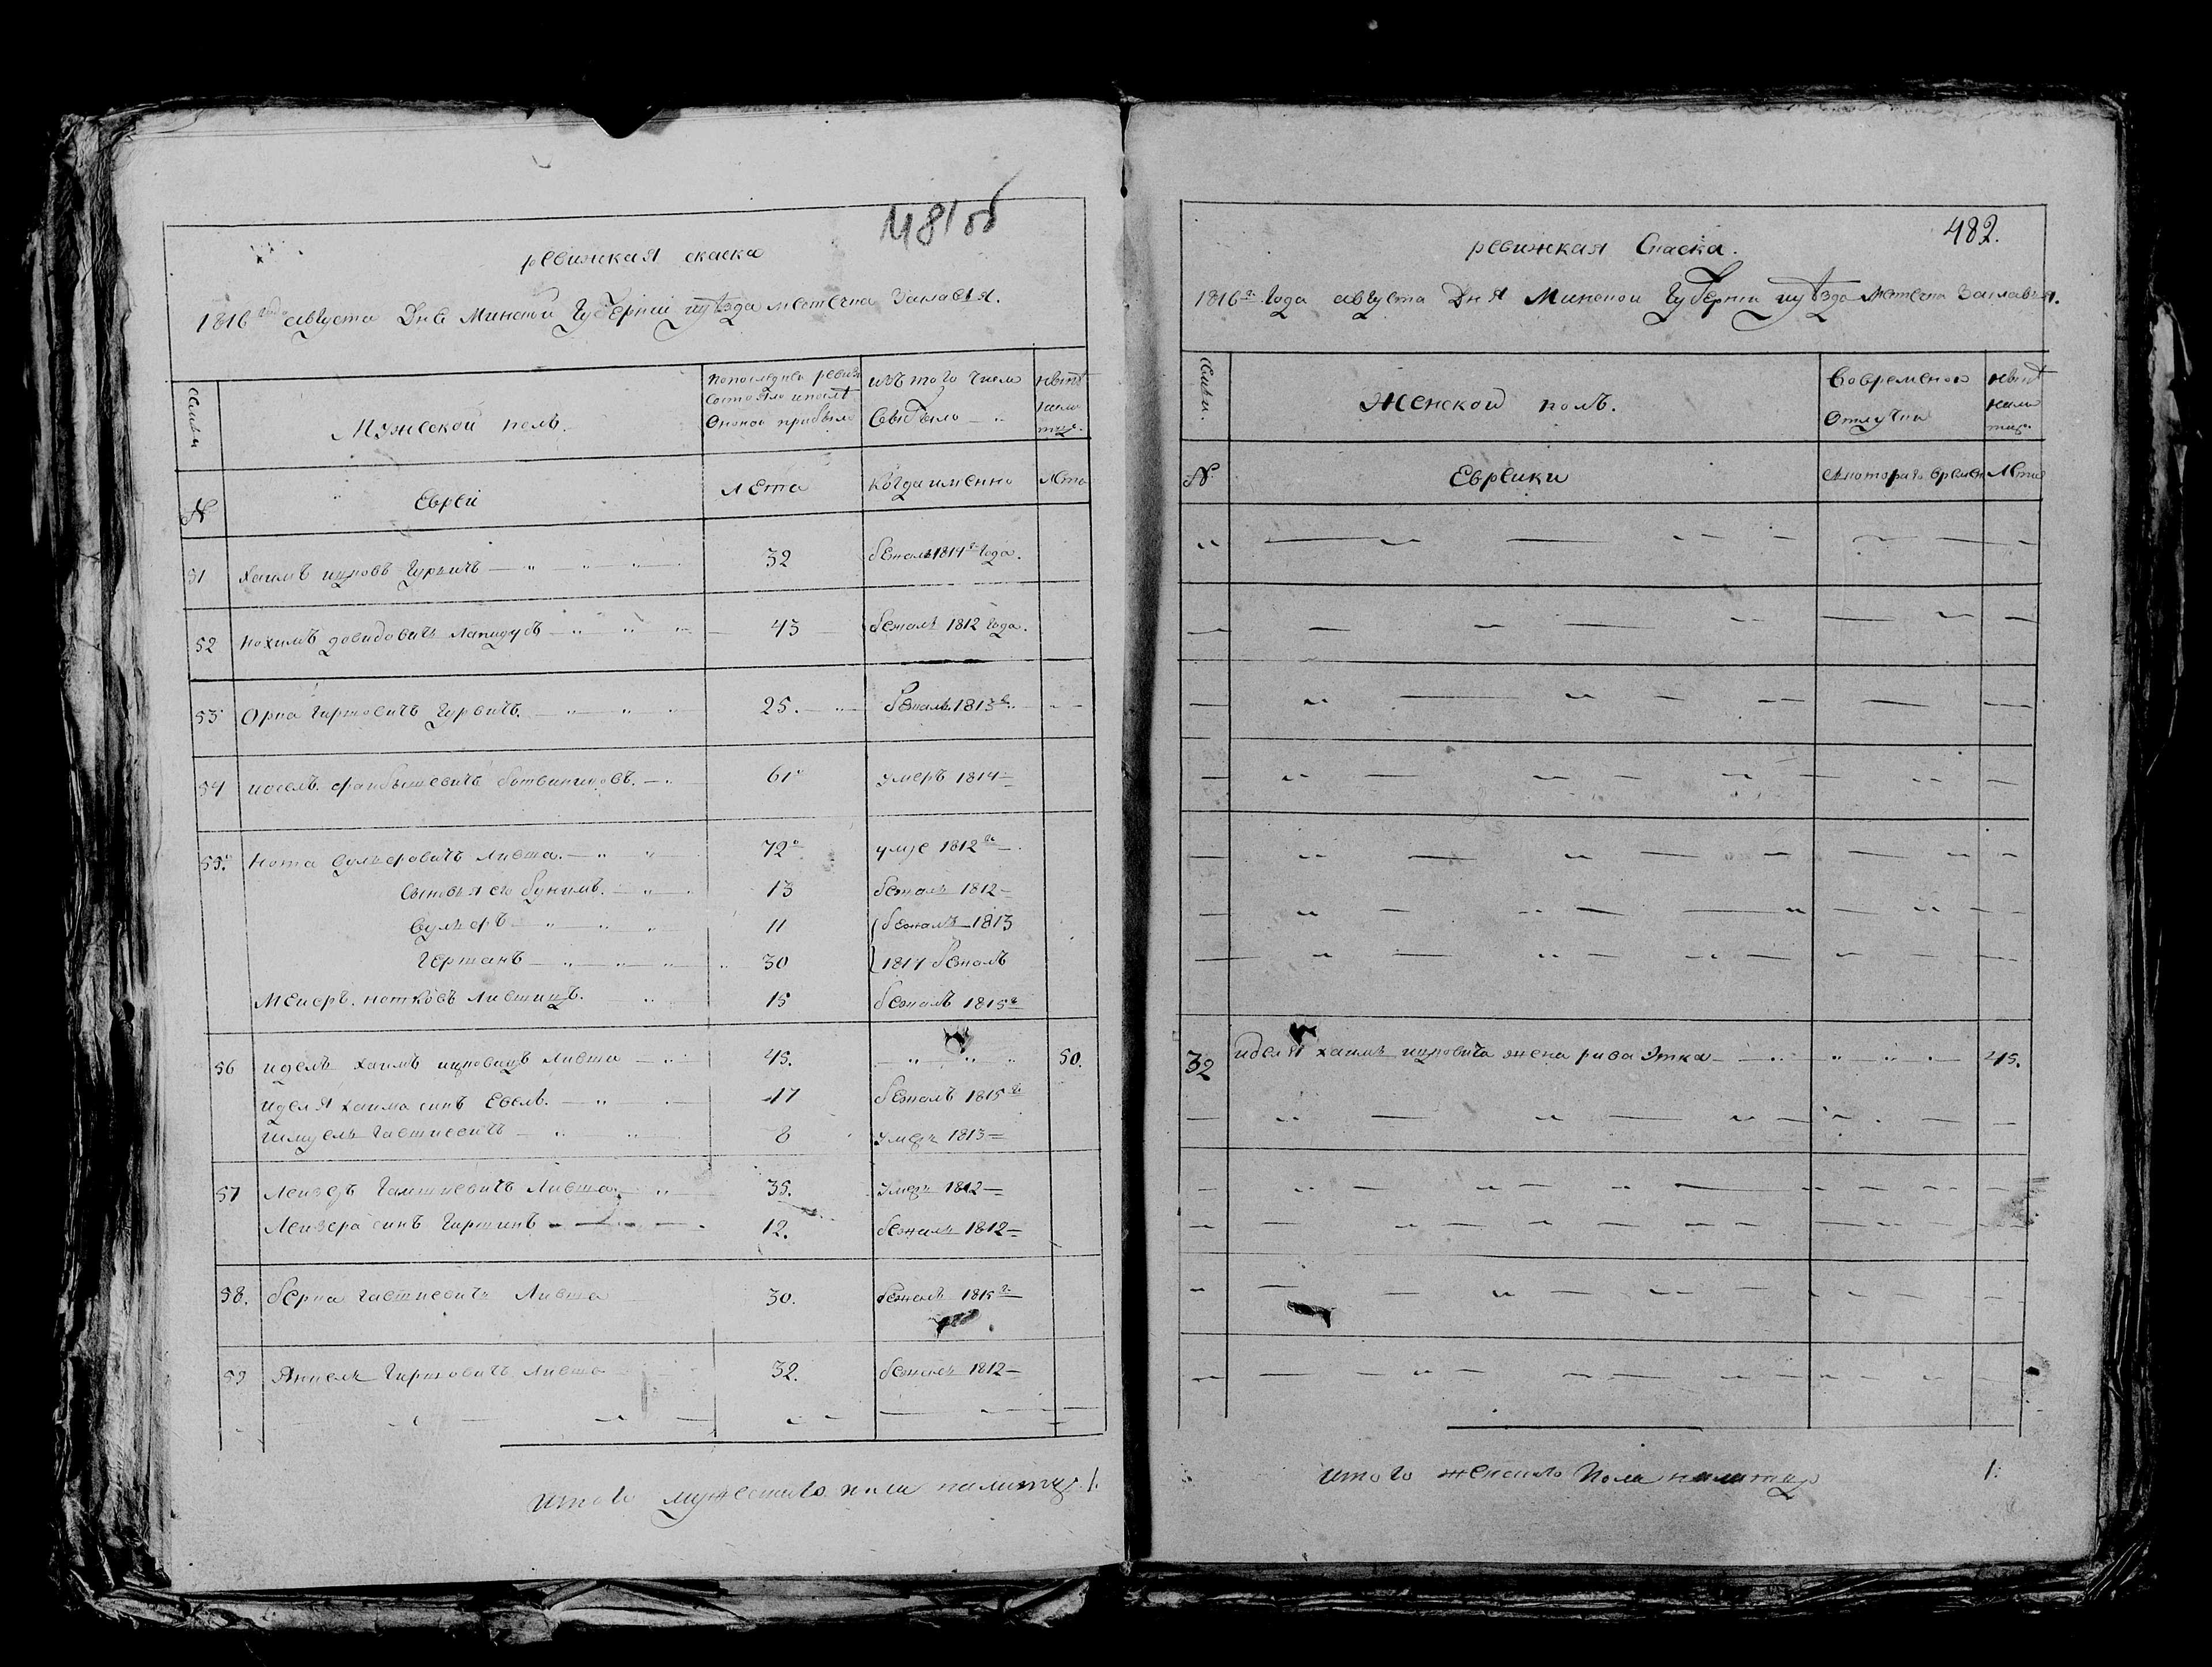 481 об
ревижская скаска
1816 года августа Дня Минской Губернии иуѣзда местечка Заславля.
семьи
Мужеской полъ.
Попоследней ревизи
состояло ипослѣ
Ононой прибыло
изъ того числа
Выбыло
нынѣ
нали
лицо
№
Еврей
Лета
Когда именно
Лета
51 Хаимъ ицковъ Гурвичъ 32 бежалъ 1814 года.
52 Нохимъ довидовичъ Лапидусъ 43 бежалъ 1812 года.
53 Орка Гиршовичъ Гурвичъ. 25. бежалъ 1813
54 иосель. Ботвинниковъ. 61 умеръ 1814
55. Нота Вульфовичъ Ливша. 72 умре 1812
Сыновья его Бунимъ. 13 бежалъ 1812
Вульфъ 11 бежалъ 1813
Гершанъ 30 1814 бежалъ
Меиеръ. нотковъ Лившицъ. 15 бежалъ 1815
56 идель хаимъ ицковичъ Ливша 45. 50.
иделя хаима синъ Евель. 17 бежалъ 1815
Шмуель 8 умеръ 1813
57 Лейзеръ Ливша 35. умеръ 1812
Лейзера синъ Гиршинъ 12. бежалъ 1812
58. берка Ливша 30. бежалъ 1815
59 Янкель Гиршовичъ Ливша 32. бежалъ 1812
итого мужескаго пола налицо 1.
482.
ревижская Скаска.
1816 Года августа Дня Минской Губернии иуѣзда Местечка Заславля.
семьи.
Женской полъ.
Вовременной
Отлучки
нынѣ
нали
лицо
№
Еврейки
скотораго времени
Летие
32 иделя хаимъ ицковича жена рива Этка 45.
итого женскаго пола налицо 1.